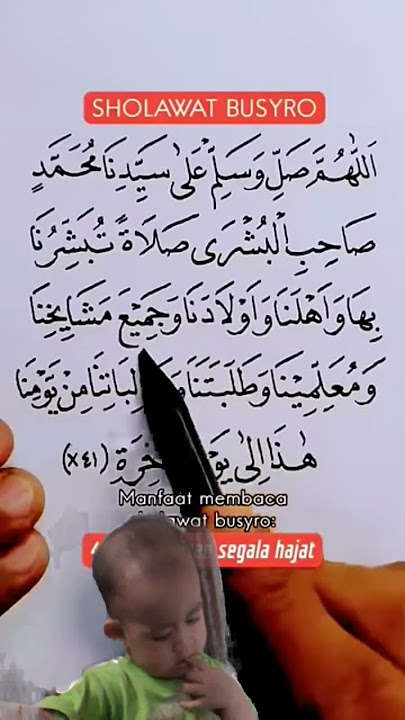 SHOLAWAT BUSYRO
اَللّٰهُمَّ صَلِّ وَسَلِّمْ عَلٰى سَيِّدِنَا مُحَمَّدٍ
صَاحِبِ الْبُشْرَى صَلَاةً تُبَشِّرُنَا
بِهَا وَاَهْلَنَا وَاَوْلَادَنَا وَجَمِيْعَ مَشَايِخِنَا
وَمُعَلِّمِيْنَا وَطَلَبَتَنَا مِنْ يَوْمِنَا
هٰذَا اِلىٰ (×٤١)
Manfaat membaca
busyro:
segala hajat